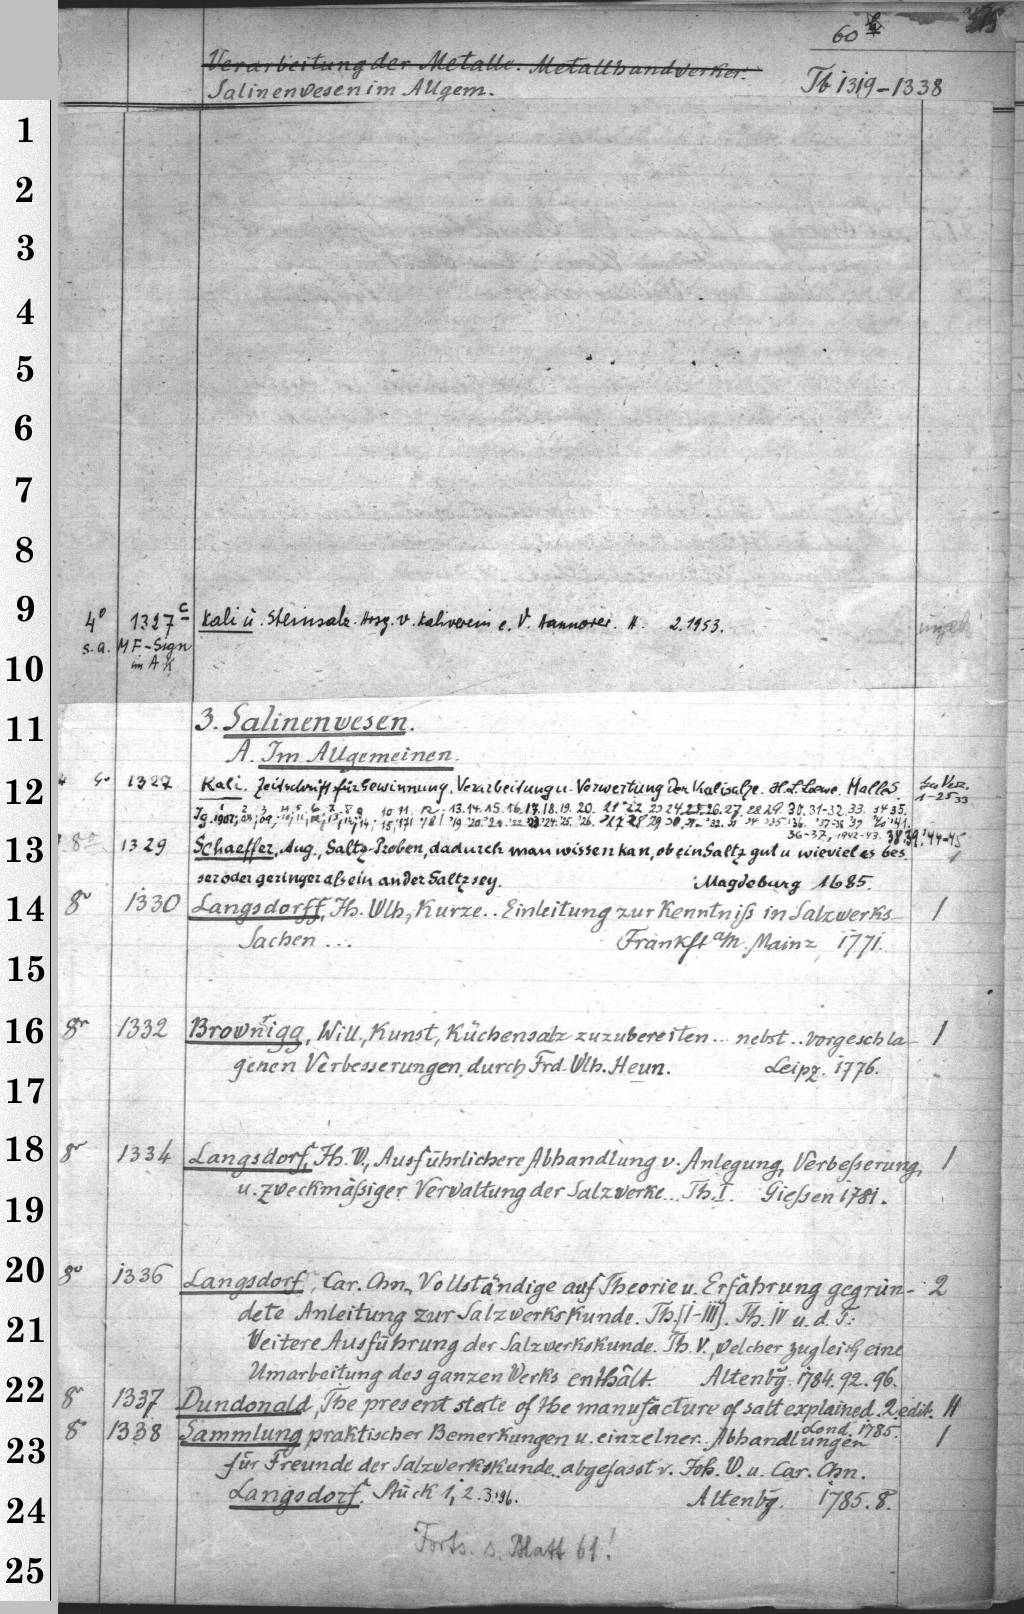 60
Verarbeitung der Metalle. Metallhandwerker.
Salinenwesen im Allgem.
Tb 1319-1338
1
2
3
4
5
6
7
8
9
4° 1327 c Kali u. Steinsalz. Hrsg. v. Kaliverein e. V. Hannover. H. 2.1953.
s.a. MF-Sign
im AK
10
11 3. Salinenwesen.
A. Im Allgemeinen.
12 1327 Kali. Zeitschrift für Gewinnung, Verarbeitung u. Verwertung der Kalisalze. Halle
Jg. 1907,
36-37, 1942-43. 38.39. '44-45
13 8° 1329 Schaeffer, Aug., Saltz-Proben, dadurch man wissen kan, ob ein Saltz gut u wieviel es bes
ser oder geringer als ein ander Saltz sey. Magdeburg 1685.
14 8° 1330 Langsdorff, Jh. Wlh., Kurze.. Einleitung zur Kenntniß in Salzwerks- 1
Sachen ... Frankft a/m. Mainz 1771.
15
16 8° 1332 Brownrigg, Will., Kunst, Küchensalz zuzubereiten... nebst.. vorgeschla- 1
genen Verbesserungen, durch Frd. Wlh. Heun. Leipz. 1776.
17
18 8° 1334 Langsdorf, Jh. W., Ausführlichere Abhandlung v. Anlegung, Verbeßerung 1
u. zweckmäßiger Verwaltung der Salzwerke... Th. I. Gießen 1781.
19
20 8° 1336 Langsdorf, Car. Chn., Vollständige auf Theorie u. Erfahrung gegrün- 2
dete Anleitung zur Salzwerkskunde. Th. [I-III]. Th. IV u. d. T.:
21 Weitere Ausführung der Salzwerkskunde. Th. V., welcher zugleich eine
Umarbeitung des ganzen Werks enthält. Altenbg. 1784. 92. 96.
22 8° 1337 Dundonald, The present state of the manufacture of salt explained. 2. edit. 11
Lond. 1785.
23 8° 1338 Sammlung praktischer Bemerkungen u. einzelner.. Abhandlungen 1
für Freunde der Salzwerkskunde, abgefasst v. Joh. W. u. Car. Chn.
24 Langsdorf. Stück 1, 2. 3.96. Altenbg. 1785. 8.
Forts. s. Blatt 61!
25